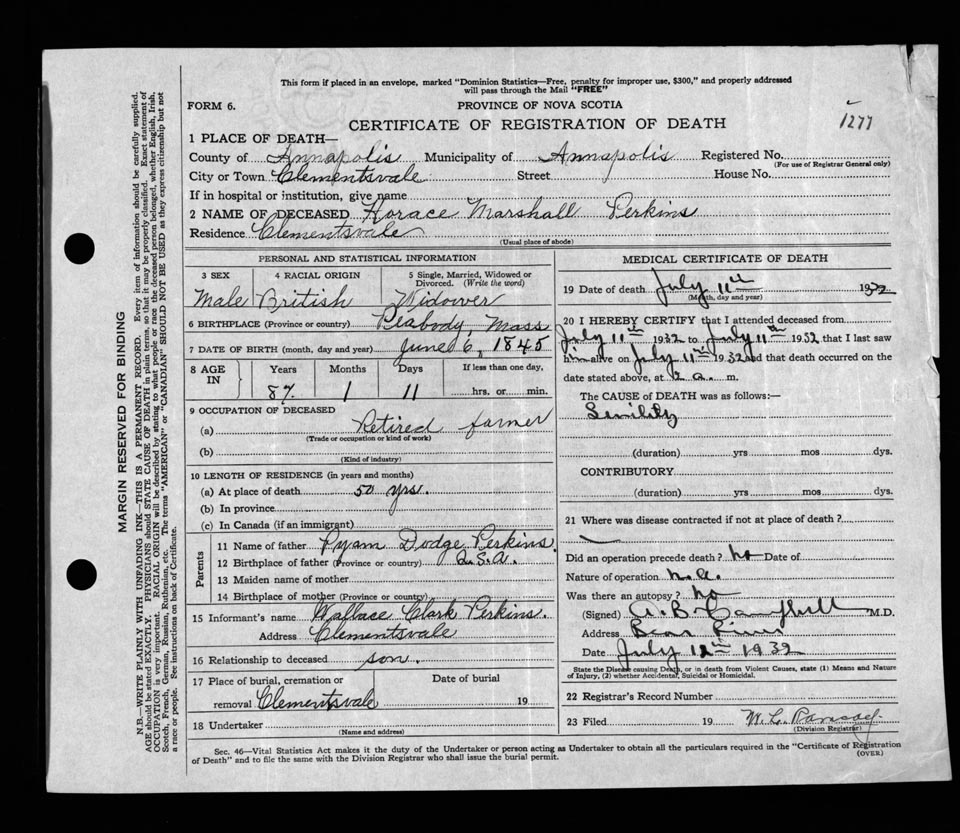 This form if placed in an envelope, marked "Dominion Statistics—Free, penalty for improper use, $300," and properly addressed
will pass through the Mail "FREE"
FORM 6.
PROVINCE OF NOVA SCOTIA
1277
CERTIFICATE OF REGISTRATION OF DEATH
1 PLACE OF DEATH—
County of Annapolis Municipality of Annapolis Registered No.
(For use of Registrar General only)
City or Town Clementsvale Street House No.
If in hospital or institution, give name
2 NAME OF DECEASED Horace Marshall Perkins
Residence Clementsvale
(Usual place of abode)
PERSONAL AND STATISTICAL INFORMATION
3 SEX 4 RACIAL ORIGIN 5 Single, Married, Widowed or Divorced. (Write the word)
Male British Widower
6 BIRTHPLACE (Province or country) Peabody, Mass
7 DATE OF BIRTH (month, day and year) June 6, 1845
8 AGE IN Years Months Days If less than one day,
87 1 11 hrs. or min.
9 OCCUPATION OF DECEASED
(a) Retired farmer
(Trade or occupation or kind of work)
(b)
(Kind of industry)
10 LENGTH OF RESIDENCE (in years and months)
(a) At place of death 50 yrs.
(b) In province
(c) In Canada (if an immigrant)
Parents
11 Name of father Pyam Dodge Perkins.
12 Birthplace of father (Province or country) U.S.A.
13 Maiden name of mother
14 Birthplace of mother (Province or country)
15 Informant's name Wallace Clark Perkins.
Address Clementsvale
16 Relationship to deceased son.
17 Place of burial, cremation or removal Clementsvale Date of burial 19
18 Undertaker
(Name and address)
MEDICAL CERTIFICATE OF DEATH
19 Date of death July 11th 1932
(Month, day and year)
20 I HEREBY CERTIFY that I attended deceased from
July 11th 1932 to July 11th 1932 that I last saw
him alive on July 11th 1932 and that death occurred on the
date stated above, at 2 a. m.
The CAUSE OF DEATH was as follows:—
Senility
(duration) yrs mos dys.
CONTRIBUTORY
(duration) yrs mos dys.
21 Where was disease contracted if not at place of death?
Did an operation precede death? No Date of
Nature of operation n.a.
Was there an autopsy? No
(Signed) A. B. Campbell M.D.
Address Bear River
Date July 12th 1932
State the Disease causing Death, or in death from Violent Causes, state (1) Means and Nature
of Injury, (2) whether Accidental, Suicidal or Homicidal.
22 Registrar's Record Number
23 Filed 19 W. L.
(Division Registrar)
Sec. 46—Vital Statistics Act makes it the duty of the Undertaker or person acting as Undertaker to obtain all the particulars required in the "Certificate of Registration
of Death" and to file the same with the Division Registrar who shall issue the burial permit.
(OVER)
MARGIN RESERVED FOR BINDING
N.B.—WRITE PLAINLY WITH UNFADING INK—THIS IS A PERMANENT RECORD. Every item of information should be carefully supplied.
AGE should be stated EXACTLY. PHYSICIANS should STATE CAUSE OF DEATH in plain terms, so that it may be properly classified. Exact statement of
OCCUPATION is very important. RACIAL ORIGIN will be described by stating to what people or race the deceased person belonged, whether English, Irish,
Scotch, French, German, Russian, Ruthenian, etc. The terms "AMERICAN" or "CANADIAN" SHOULD NOT BE USED as they express citizenship but not
a race or people. See instructions on back of Certificate.